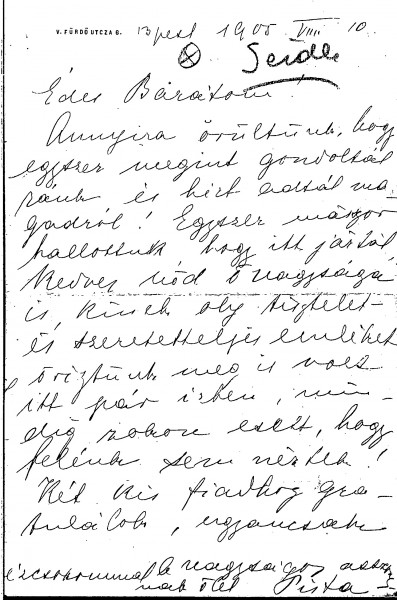 V. FÜRDŐ UTCZA 6. Bpest 1905 VIII 10.
Seidl
Édes Barátom!
Annyira örültünk, hogy
egyszer megint gondoltál
ránk és hírt adtál ma-
gadról! Egyszer másszor
hallottuk hogy itt jártál
Kedves nőd ő nagysága
is kinek oly tisztelet-
és szeretetteljes emlékét
őriztünk meg is volt
itt pár izben, min-
dig zokon esett, hogy
felénk sem néztek!
Két kis fiadhoz gra-
tulálok, ugyancsak
a nagyságos asszony-
nak ölel Pista